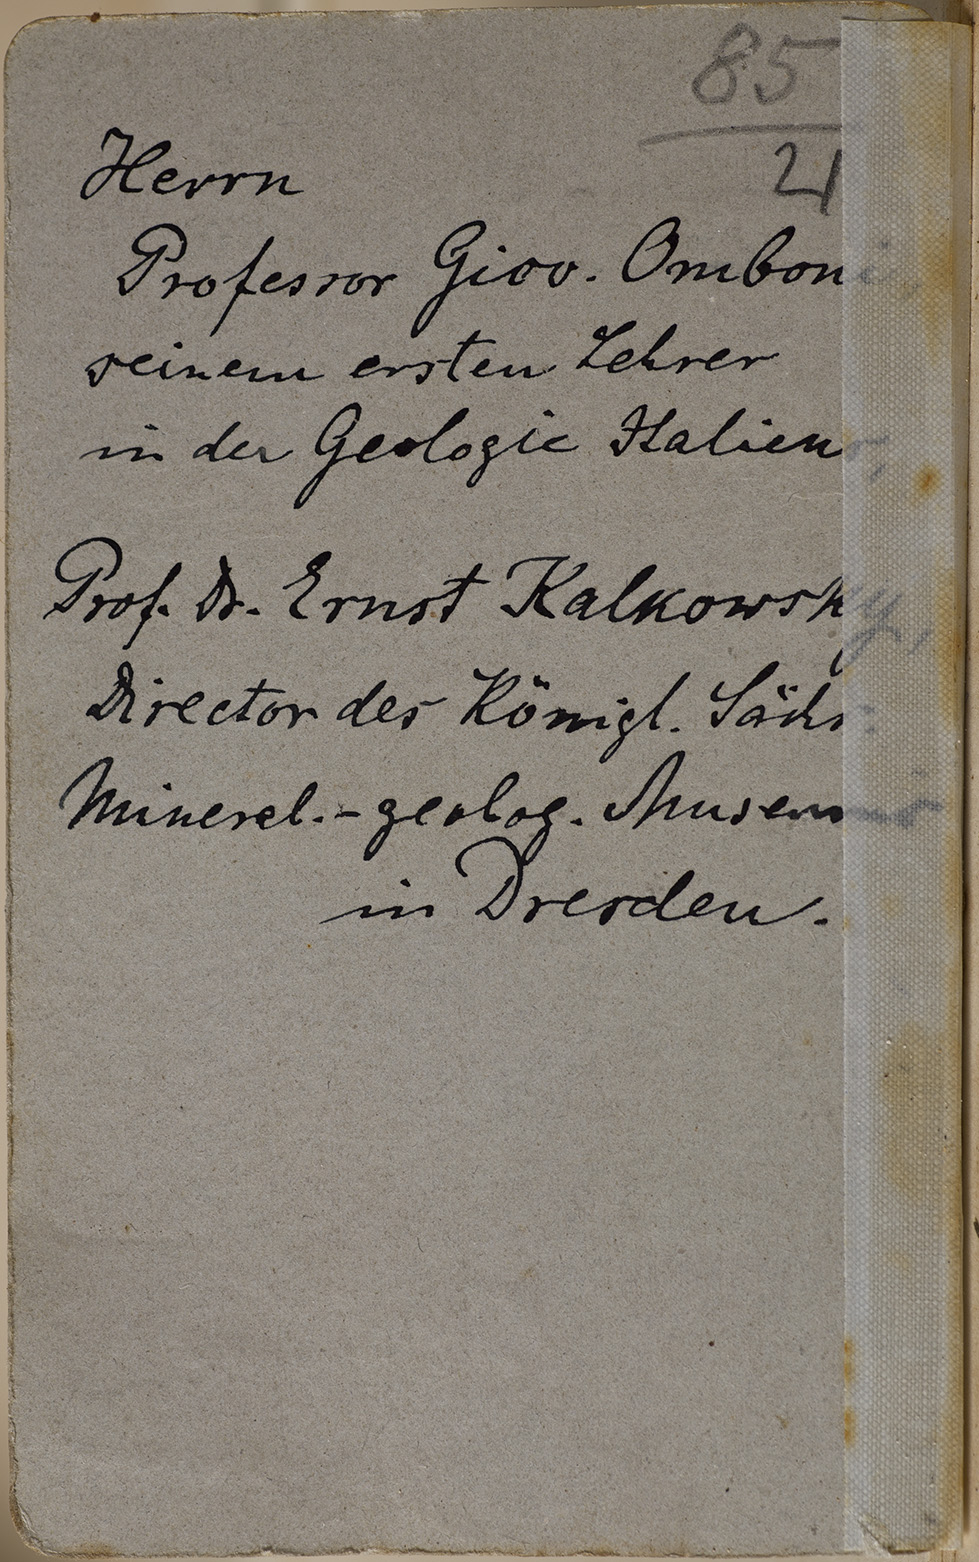 85
21
Herrn
Professor Giov. Omboni,
seinem ersten Lehrer
in der Geologie Italiens,
Prof. Dr. Ernst Kalkowsky,
Director des Königl. Sächs.
Mineral.-geolog. Museums
in Dresden.